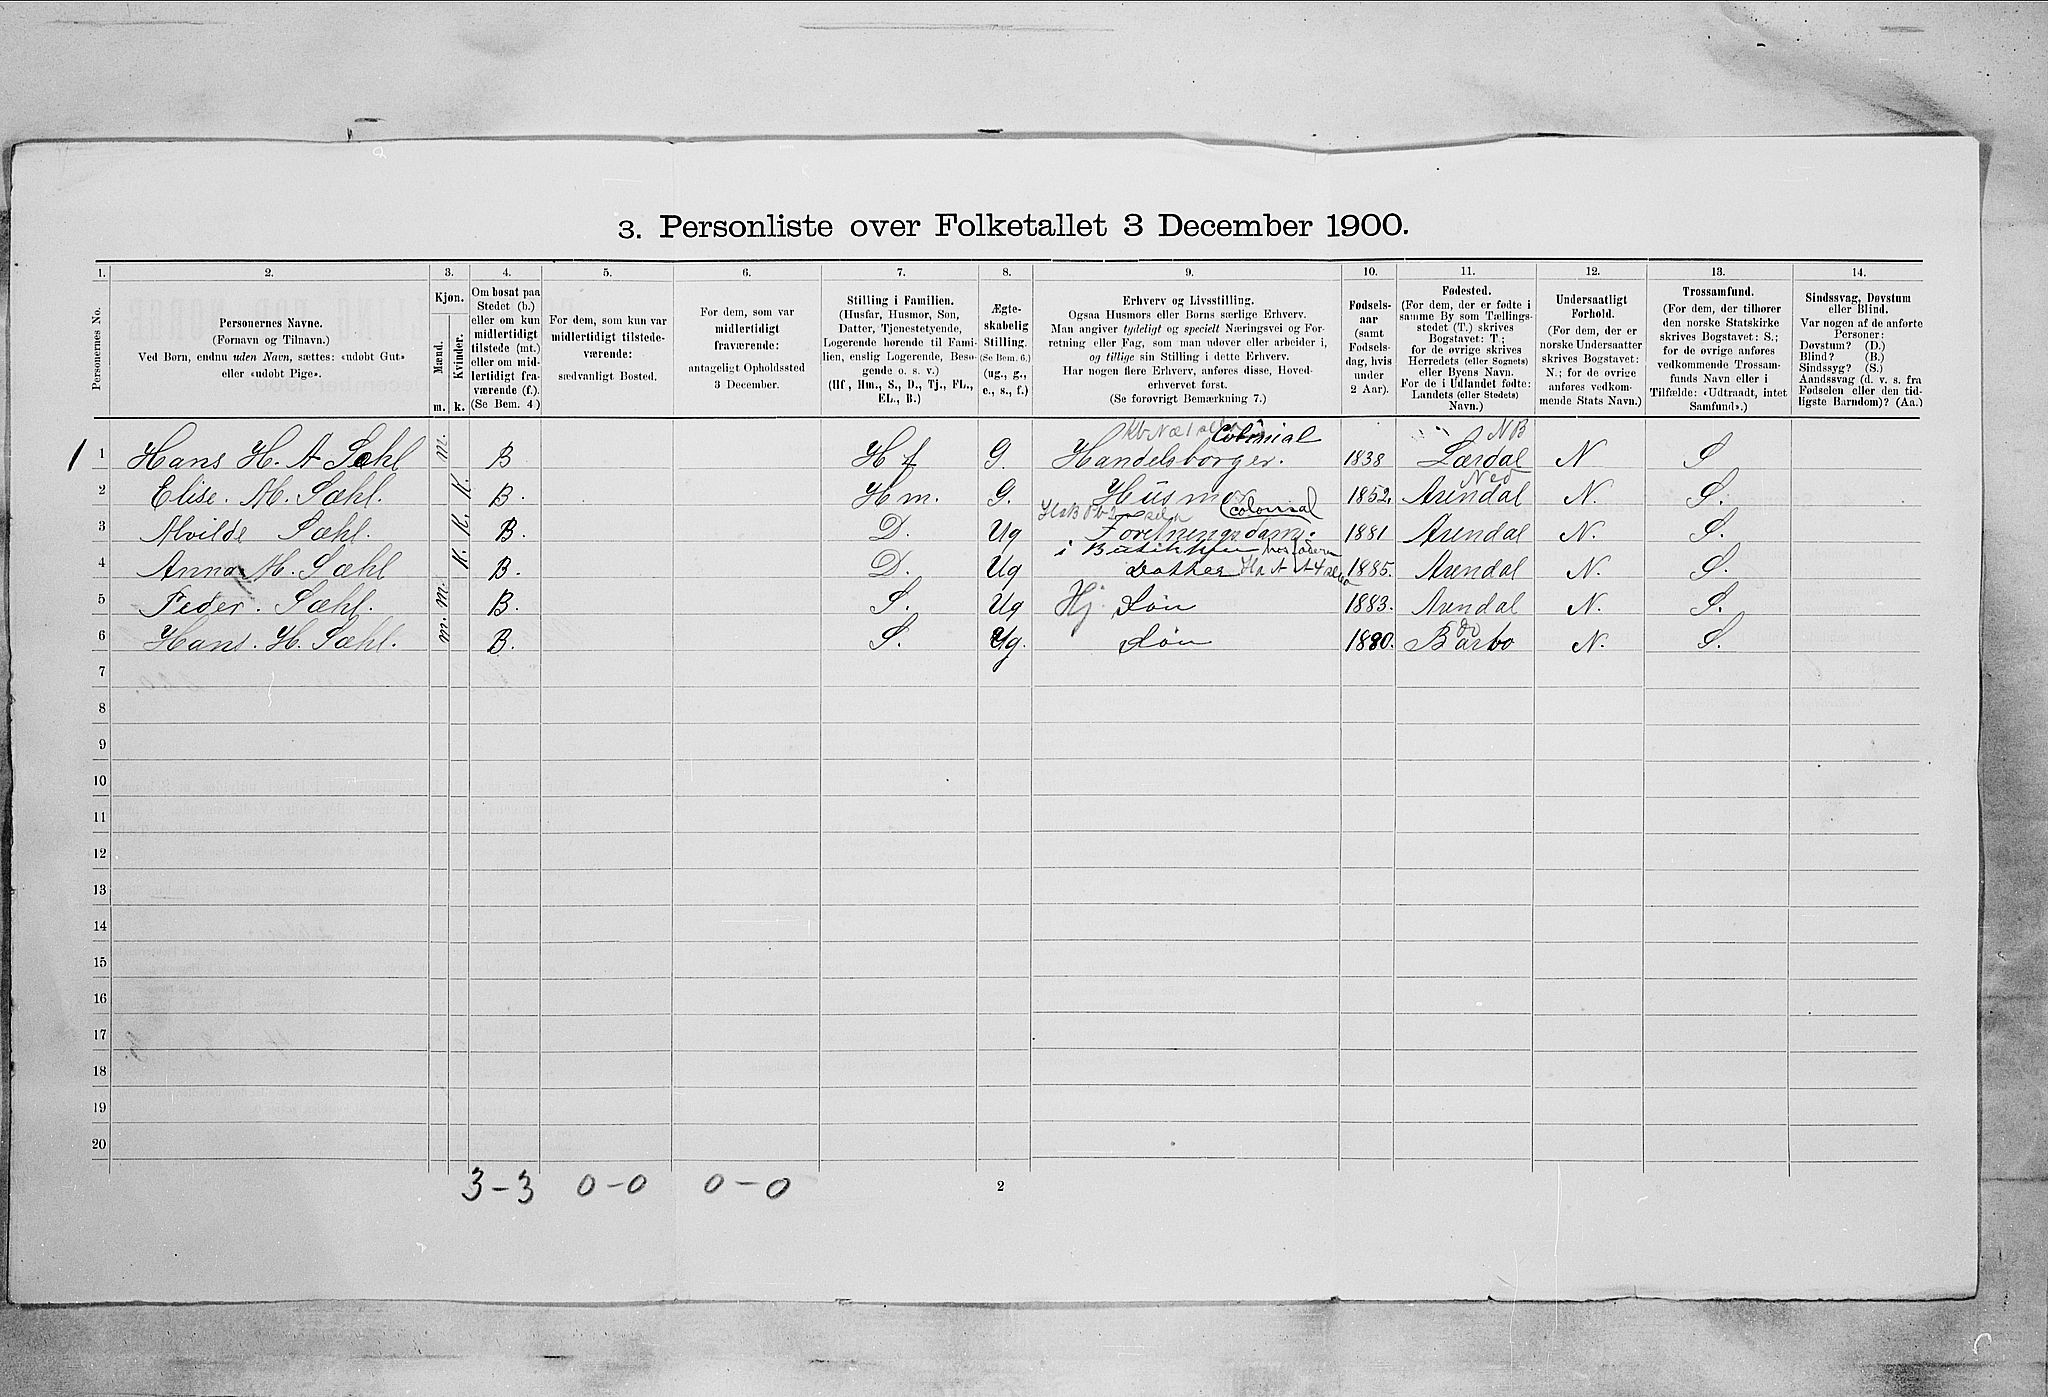 3. Personliste over Folketallet 3 December 1900.
1. 2. 3. 4. 5. 6. 7. 8. 9. 10. 11. 12. 13. 14.
Personernes No.
Personernes Navne.
(Fornavn og Tilnavn.)
Ved Børn, endnu uden Navn, sættes: «udobt Gut»
eller «udobt Pige».
Kjøn.
Mænd.
Kvinder.
m. k.
Om bosat paa
Stedet (b.)
eller om kun
midlertidigt
tilstede (mt.)
eller om mid-
lertidigt fra-
værende (f.)
(Se Bem. 4)
For dem, som kun var
midlertidigt tilstede-
værende:
sædvanligt Bosted.
For dem, som var
midlertidigt
fraværende:
antageligt Opholdssted
3 December.
Stilling i Familien.
(Husfar, Husmor, Søn,
Datter, Tjenestetyende,
Logerende hørende til Fami-
lien, enslig Logerende, Besø-
gende o. s. v.)
(Hf, Hm., S., D., Tj., FL.,
EL., B.)
Ægte-
skabelig
Stilling.
(Se Bem. 6.)
(ug., g.,
e., s., f.)
Erhverv og Livsstilling.
Ogsaa Husmors eller Børns særlige Erhverv.
Man angiver tydeligt og specielt Næringsvei og For-
retning eller Fag, som man udøver eller arbeider i,
og tillige sin Stilling i dette Erhverv.
Har nogen flere Erhverv, anføres disse, Hoved-
erhvervet først.
(Se forøvrigt Bemærkning 7.)
Fødsels-
aar
(samt
Fødsels-
dag, hvis
under
2 Aar).
Fødested.
(For dem, der er fødte i
samme By som Tællings-
stedet (T.) skrives
Bogstavet: T.;
for de øvrige skrives
Herredets (eller Sognets)
eller Byens Navn.
For de i Udlandet fødte:
Landets (eller Stedets)
Navn.)
Undersaatligt
Forhold.
(For dem, der er
norske Undersaatter
skrives Bogstavet:
N.; for de øvrige
anføres vedkom-
mende Stats Navn.)
Trossamfund.
(For dem, der tilhører
den norske Statskirke
skrives Bogstavet: S.;
for de øvrige anføres
vedkommende Trossam-
funds Navn eller i
Tilfælde: «Udtraadt, intet
Samfund».)
Sindssvag, Døvstum
eller Blind.
Var nogen af de anførte
Personer:
Døvstum? (D.)
Blind? (B.)
Sindssyg? (S.)
Aandssvag (d. v. s. fra
Fødselen eller den tid-
ligste Barndom)? (Aa.)
Colonial NB
1 1 Hans H. A Sæhl m. B Hf G. Handelsborger. 1838 Lærdal N S
Ned
2 Elise. M. Sæhl. K. B. Hm. G. Husmor 1852. Arendal N. S.
colonial
3 Alvilde Sæhl. K. B. D. Ug Foretningsdame 1881 Arendal N. S.
i Butikken hos faderen
4 Anna M. Sæhl K. B. D. Ug Datter 1885. Arendal N. S.
5 Peder. Sæhl. m. B. S. Ug Hj. Søn 1883. Arendal N. S.
do
6 Hans. H. Sæhl. m. B. S. Ug. Søn 1880. Barbo N. S.
7
8
9
10
11
12
13
14
15
16
17
18
19
20
3-3 0-0 0-0
2